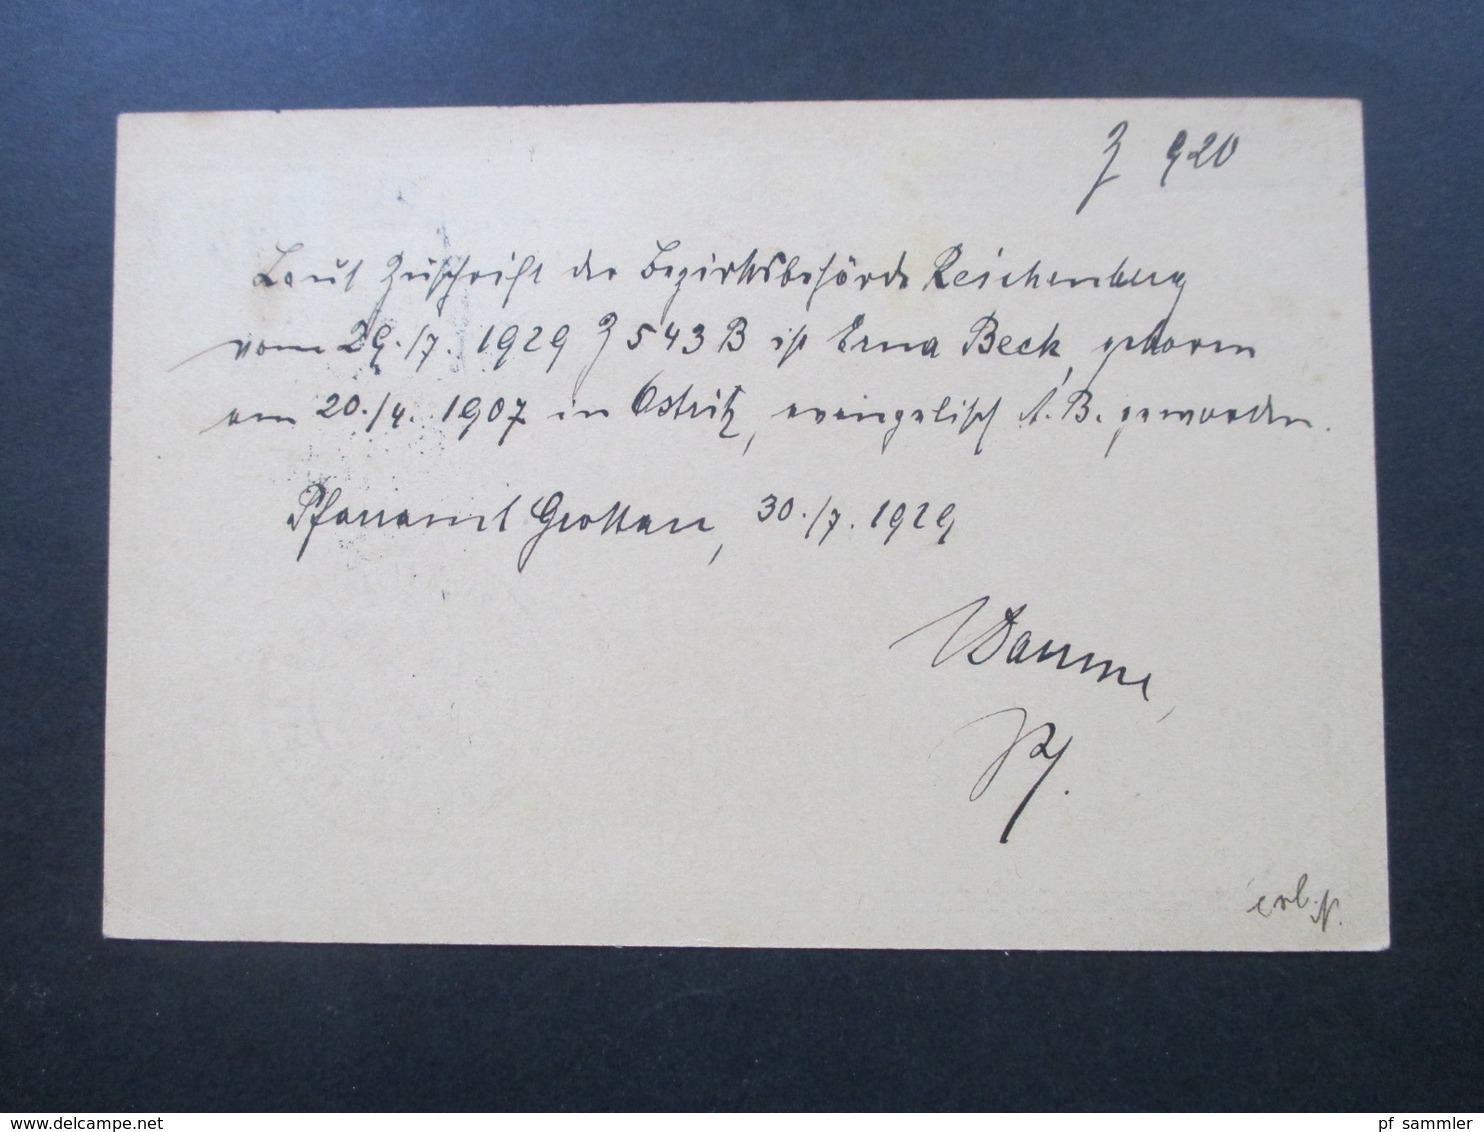 Z 920
Laut Zuschrift der Bezirksbehörde Reichenberg
vom 29./7. 1929 Z 543 B ist Erna Beck, geboren
am 20./4. 1907 in Ostritz, evangelisch A. B. geworden.
Pfarramt Grottau, 30./7. 1929
Pf.
erl. N.
www.delcampe.net
pf_sammler